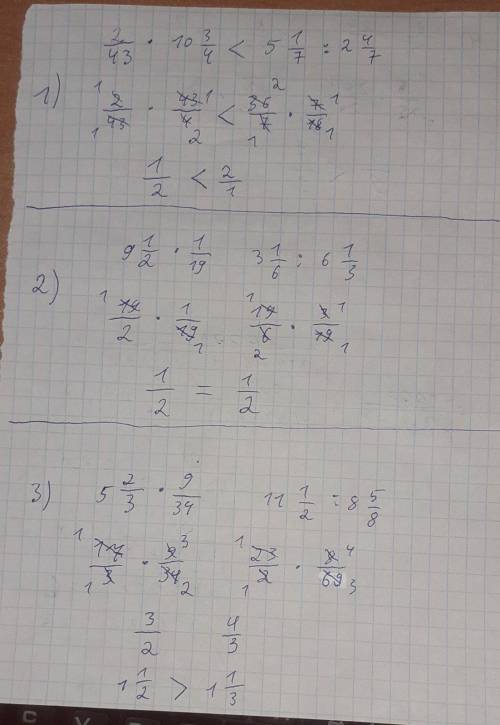 2/43 · 10 3/4 < 5 1/7 : 2 4/7
1) 2/43 · 43/4 < 36/7 · 7/18
1/2 < 2/1
9 1/2 · 1/19 3 1/6 : 6 1/3
2) 19/2 · 1/19 19/6 · 3/19
1/2 = 1/2
3) 5 2/3 · 9/34 11 1/2 : 8 5/8
17/3 · 9/34 23/2 · 8/69
3/2 4/3
1 1/2 > 1 1/3